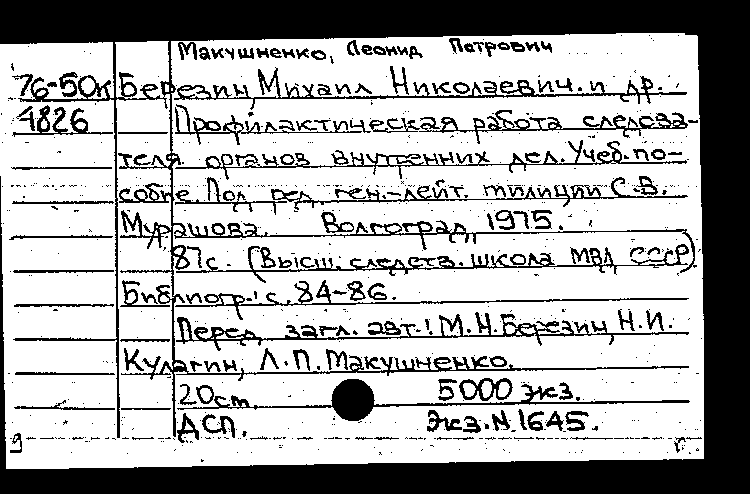 Макушненко, Леонид Петрович
76-50к Березин, Михаил Николаевич. и др.
4826 Профилактическая работа следова-
теля органов внутренних дел. Учеб. по-
собие. Под ред. ген.-лейт. милиции С.В.
Мурашова. Волгоград, 1975.
87с. (Высш. следств. школа МВД СССР)
Библиогр.: с. 84-86.
Перед загл. авт.: М.Н. Березин, Н.И.
Кулагин, Л.П. Макушненко.
20см. 5000 экз.
ДСП. Экз. N 1645.
9 г